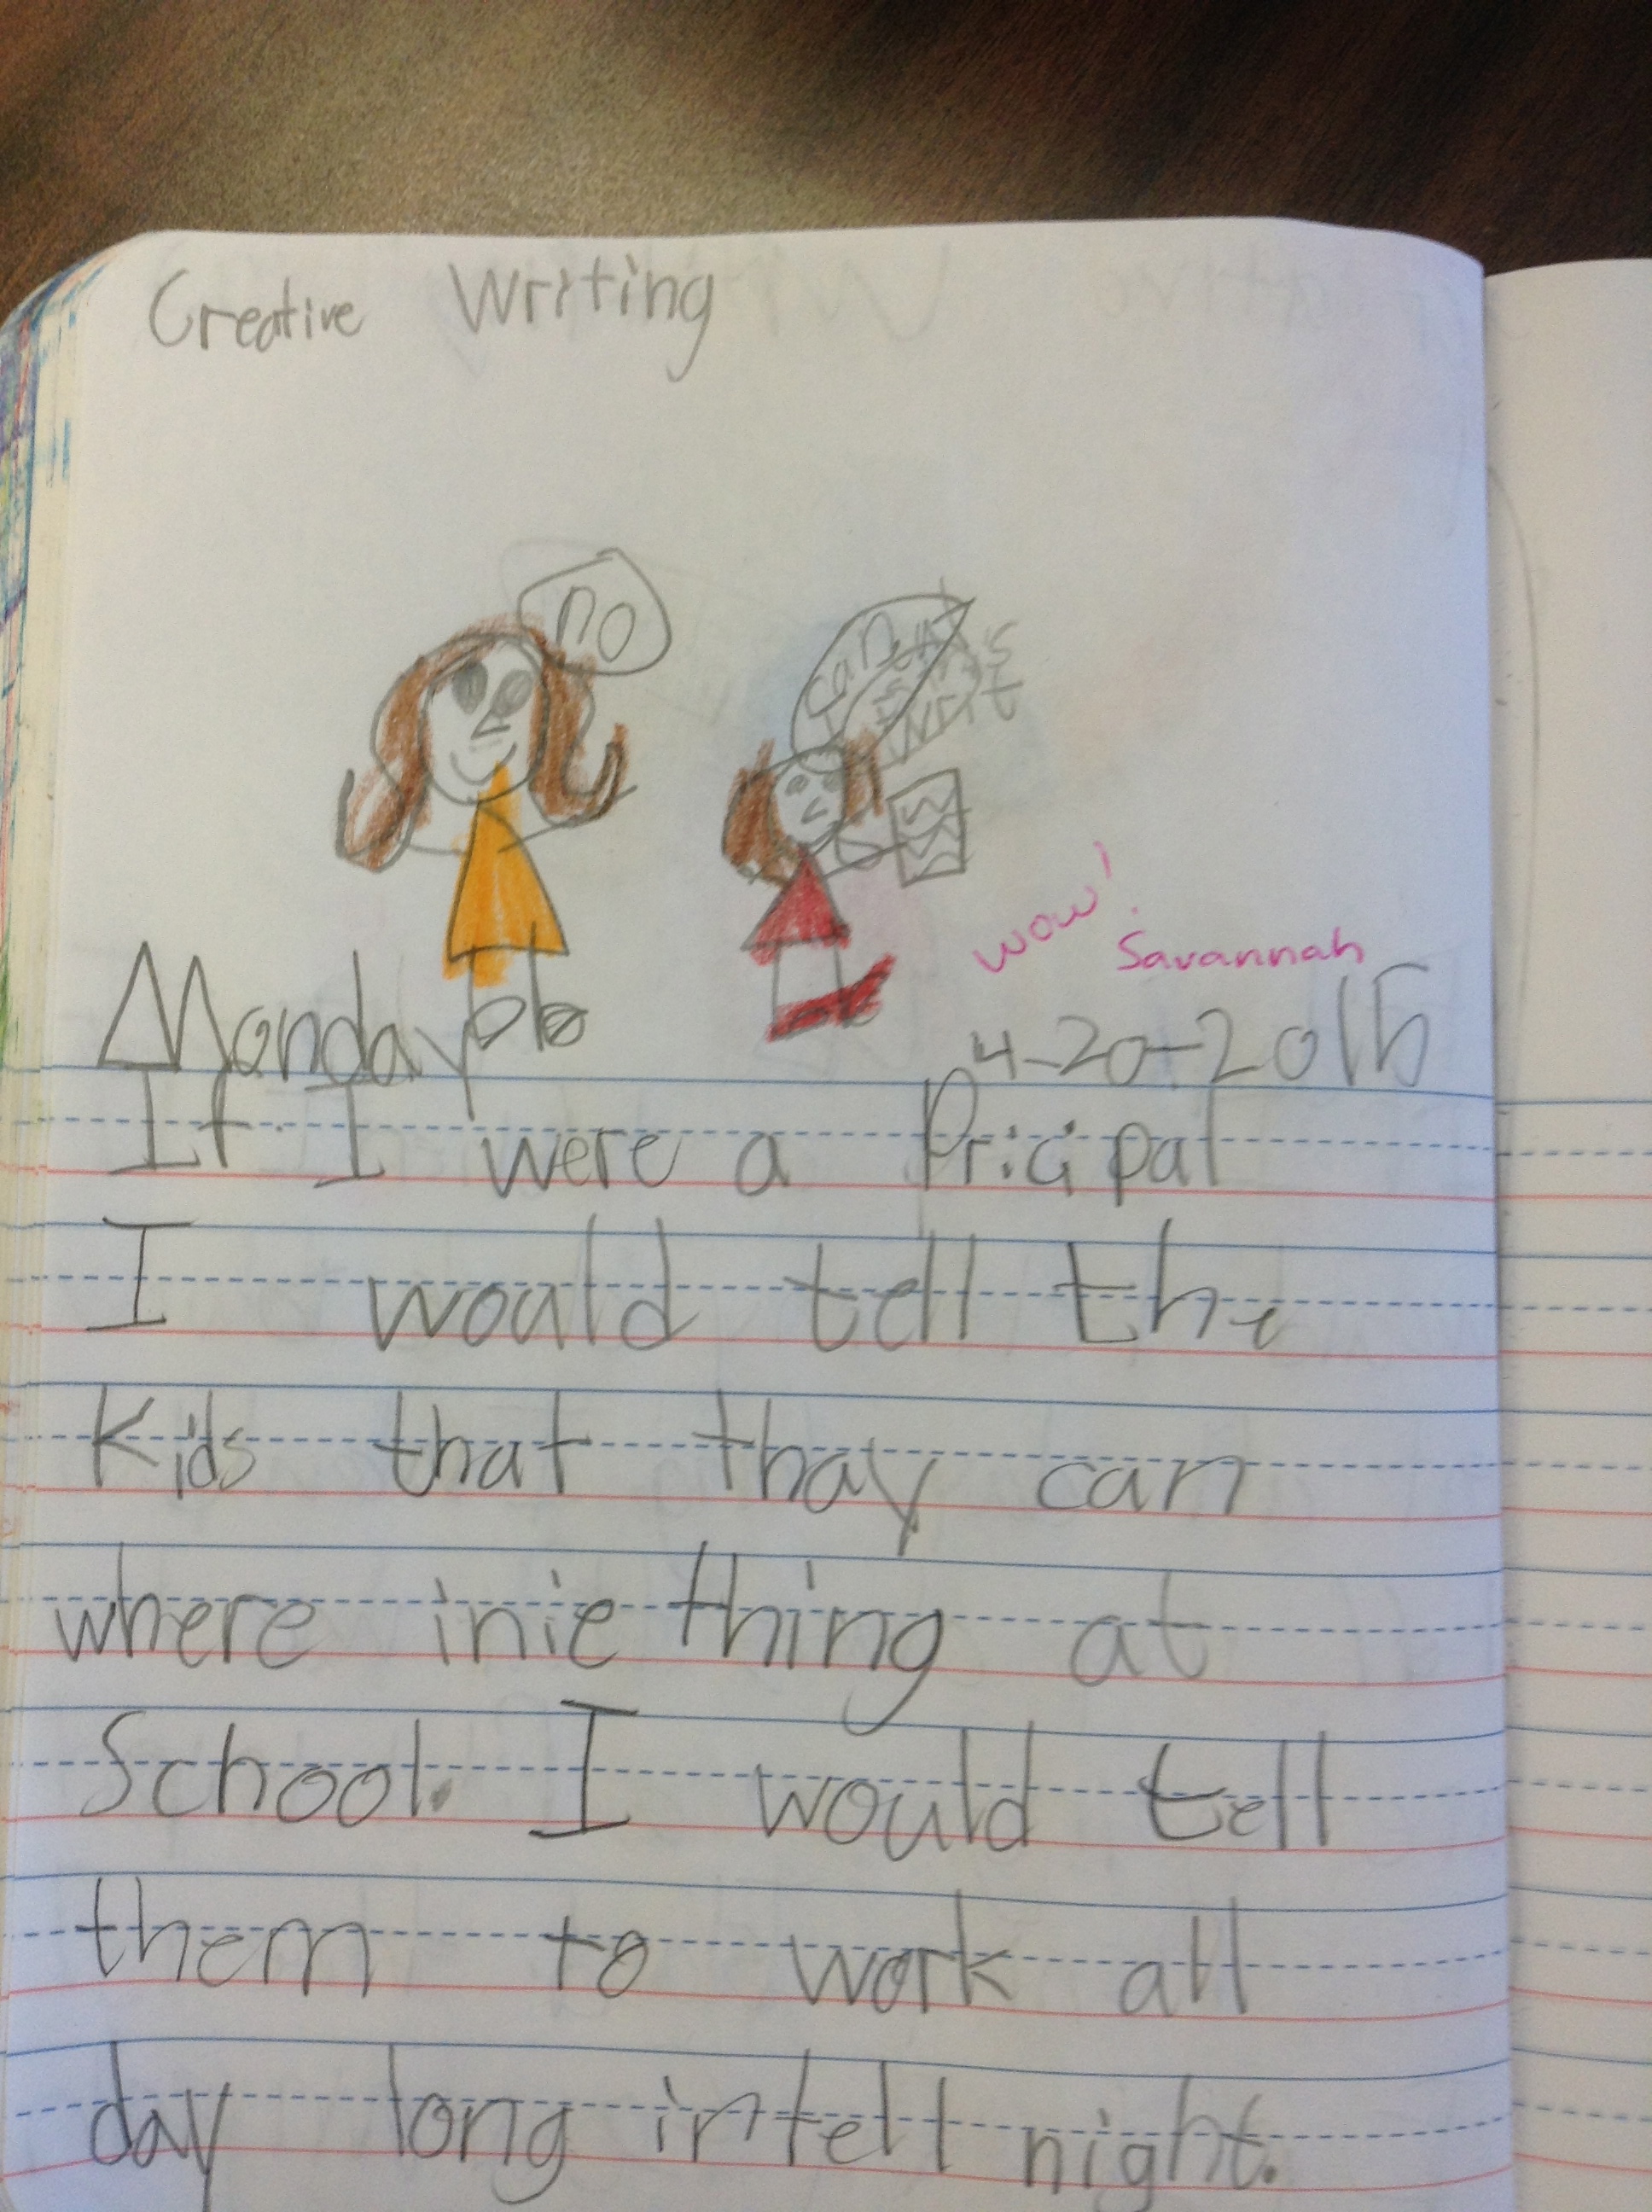 Creative Writing
no
wow!
Savannah
Monday 4-20-2015
If I were a Pricipal
I would tell the
Kids that thay can
where inie thing at
School. I would tell
them to work all
day long intell night.